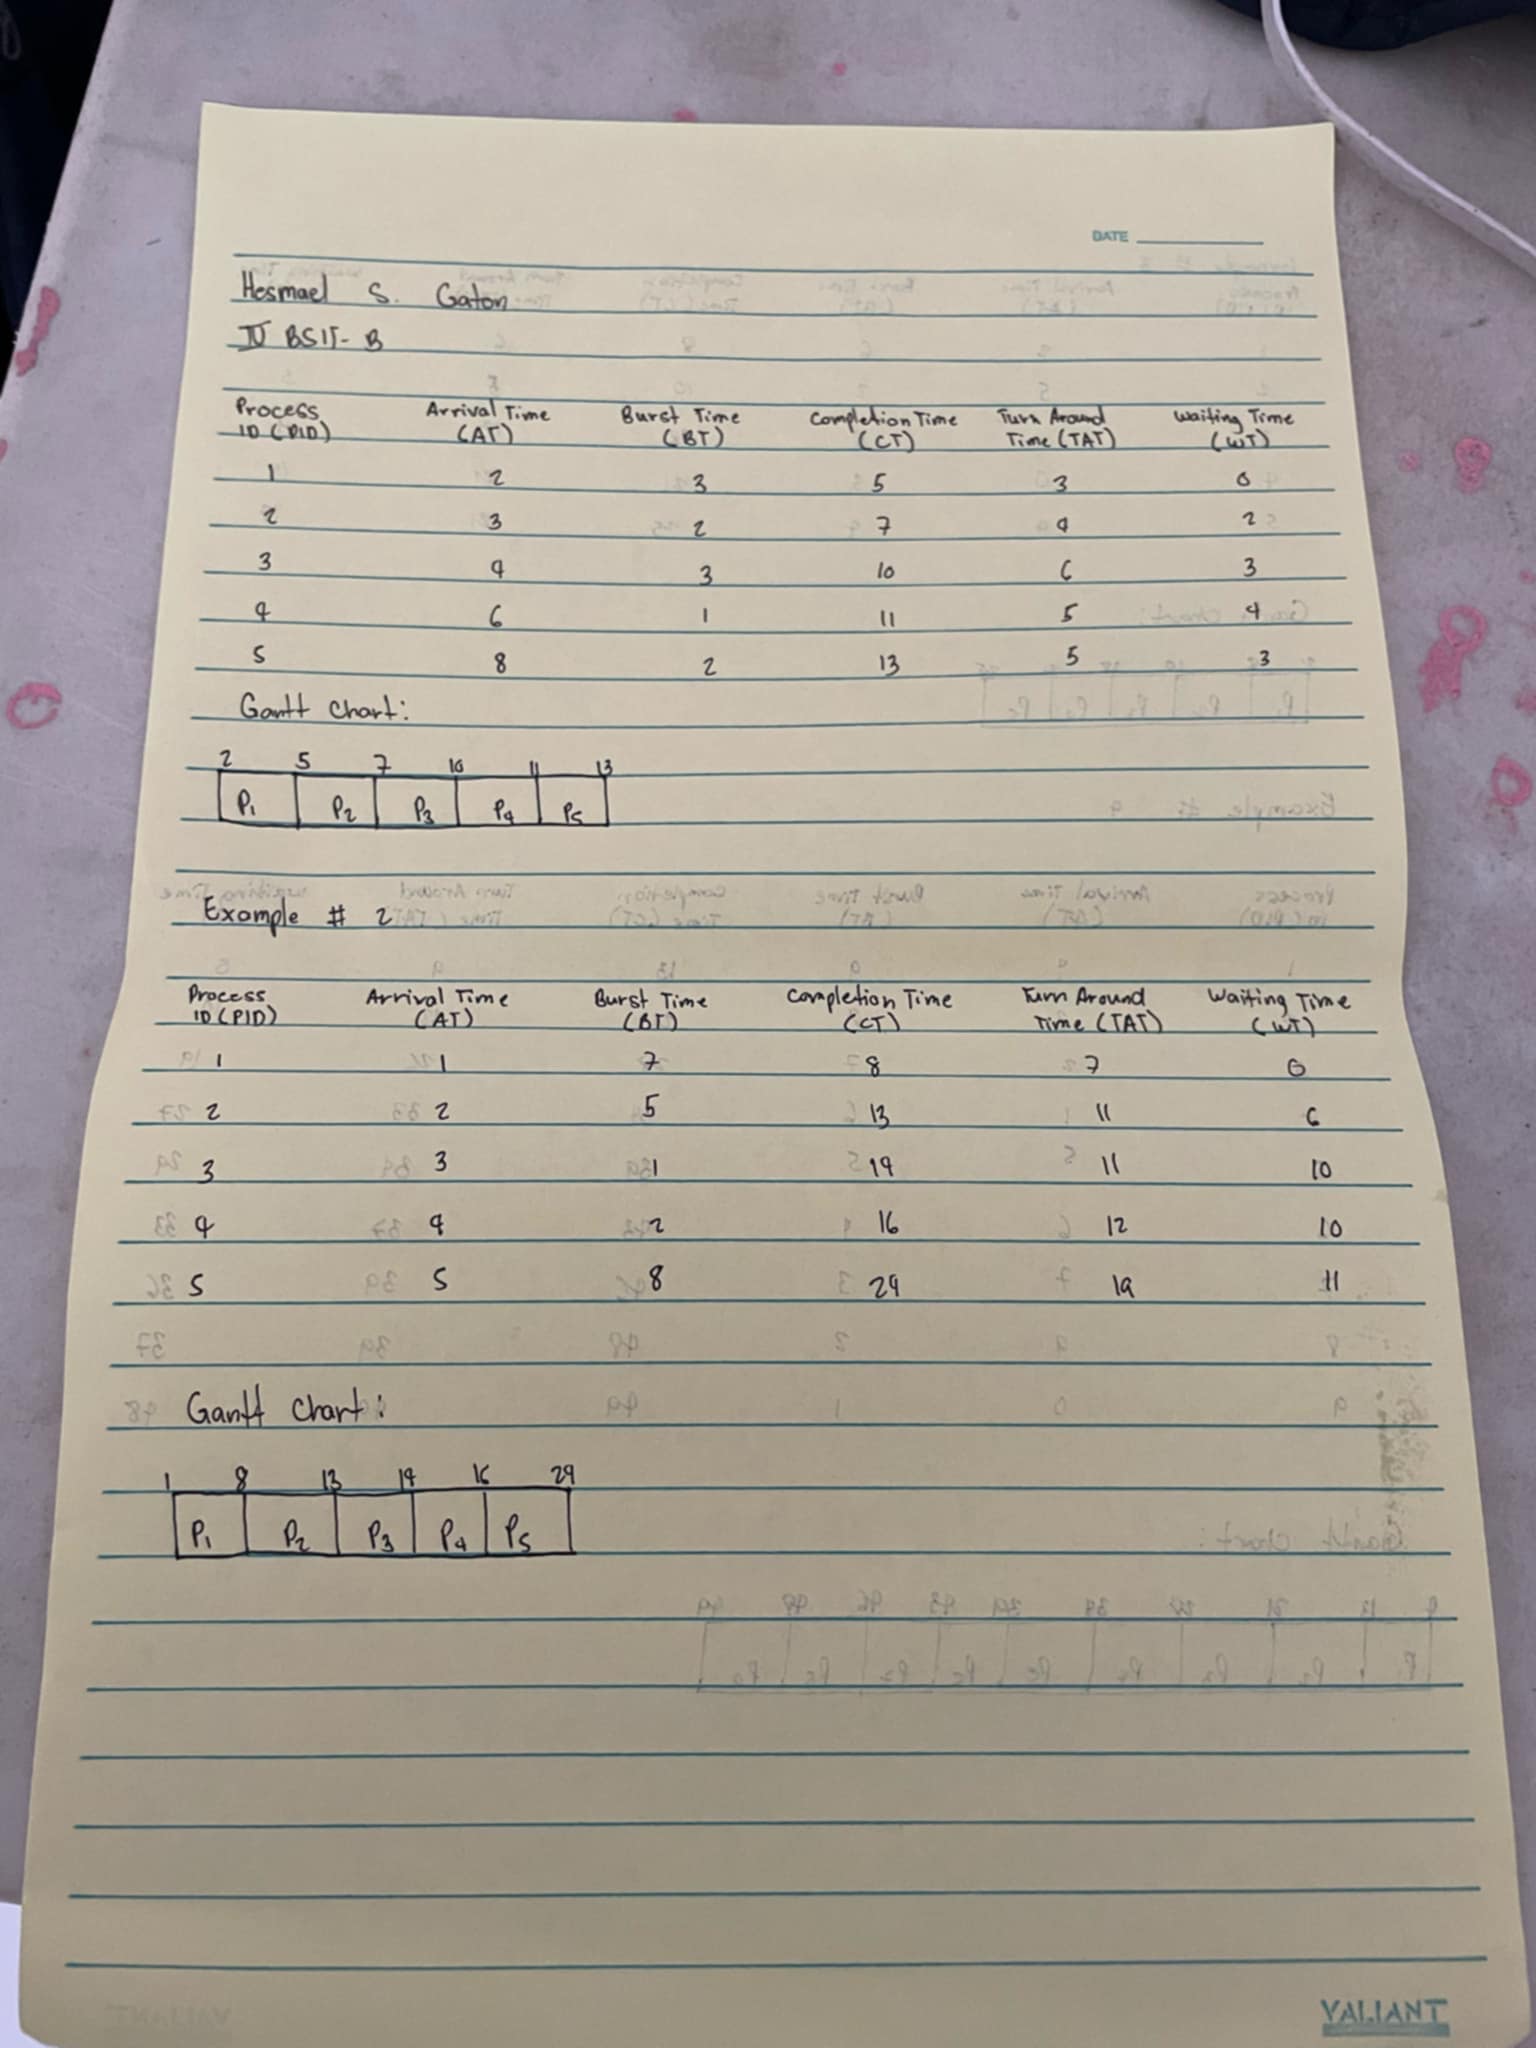 DATE
Hesmael S. Gaton
IV BSIT- B
Process ID (PID) Arrival Time (AT) Burst Time (BT) Completion Time (CT) Turn Around Time (TAT) Waiting Time (WT)
1 2 3 5 3 0
2 3 2 7 4 2
3 4 3 10 6 3
4 6 1 11 5 4
5 8 2 13 5 3
Gantt Chart:
2 5 7 10 11 13
P1 P2 P3 P4 P5
Example # 2
Process ID (PID) Arrival Time (AT) Burst Time (BT) Completion Time (CT) Turn Around Time (TAT) Waiting Time (WT)
1 1 7 8 7 0
2 2 5 13 11 6
3 3 1 14 11 10
4 4 2 16 12 10
5 5 8 24 19 11
Gantt Chart:
1 8 13 14 16 24
P1 P2 P3 P4 P5
VALIANT